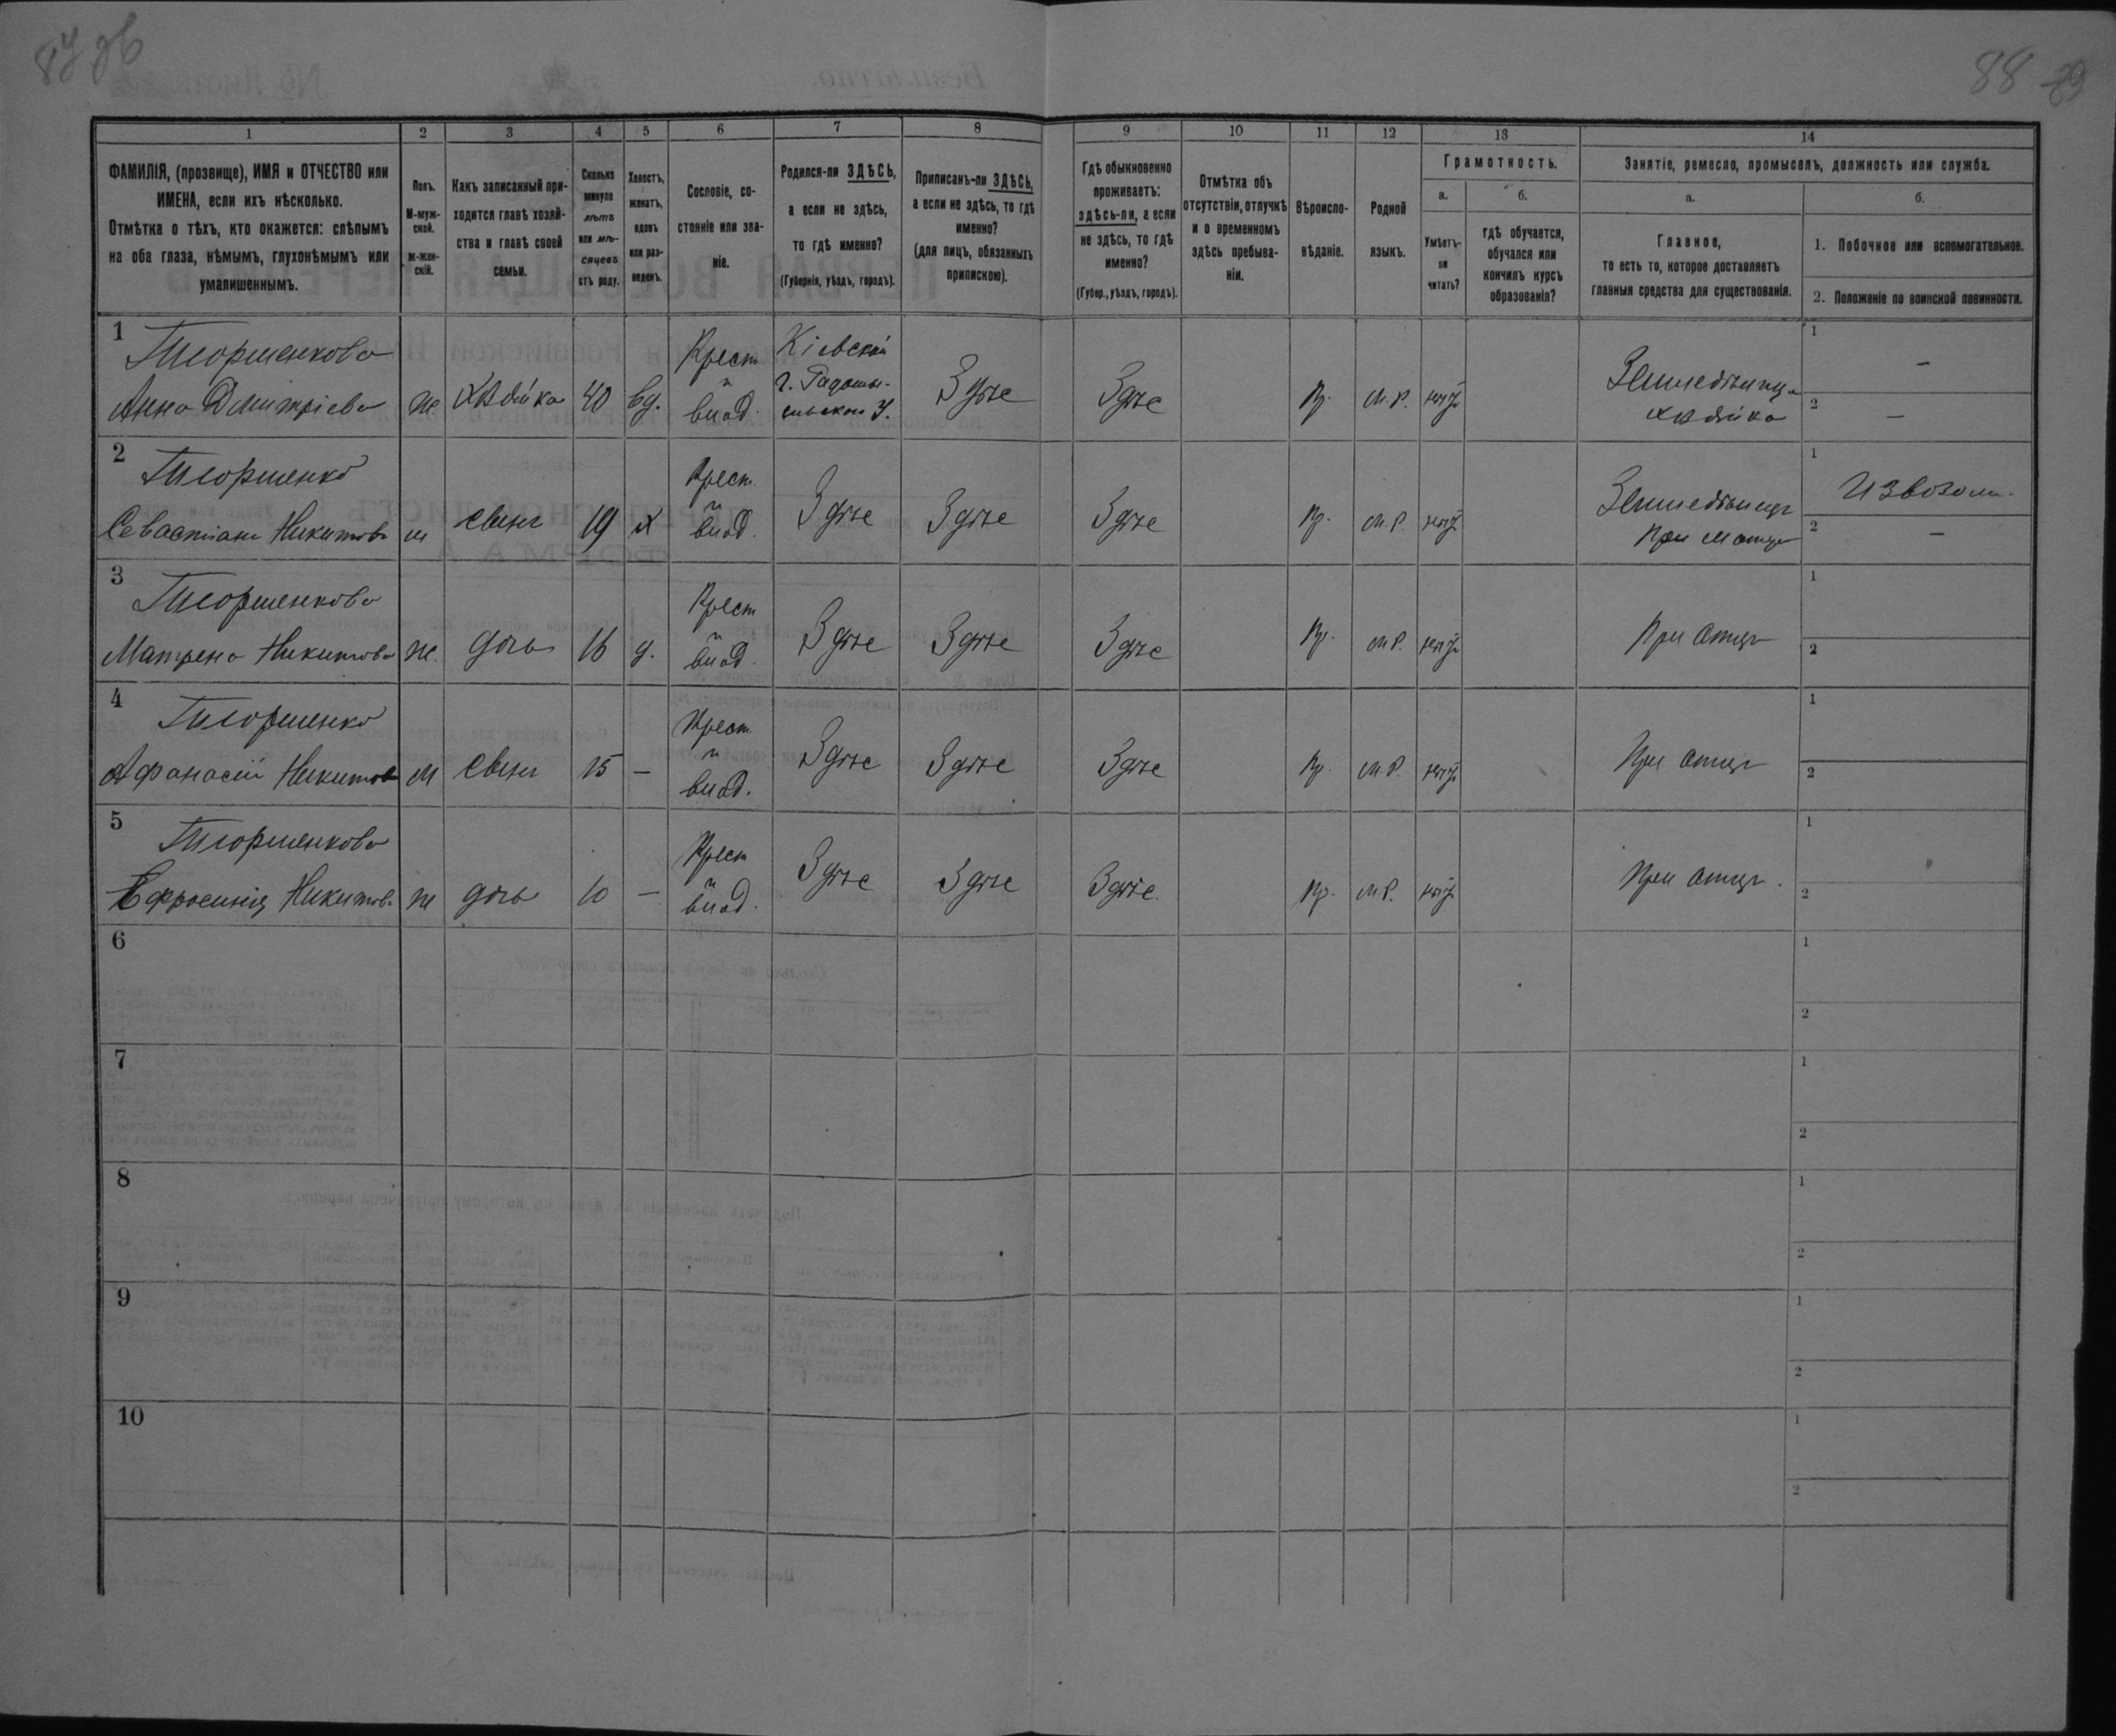 87 об
88 89
1 2 3 4 5 6 7 8 9 10 11 12 13 14
ФАМИЛІЯ, (прозвище), ИМЯ и ОТЧЕСТВО или
ИМЕНА, если ихъ нѣсколько.
Отмѣтка о тѣхъ, кто окажется: слѣпымъ
на оба глаза, нѣмымъ, глухонѣмымъ или
умалишеннымъ.
Полъ.
М-муж-
ской.
Ж-жен-
скій.
Какъ записанный при-
ходится главѣ хозяй-
ства и главѣ своей
семьи.
Сколько
минуло
лѣтъ
или мѣ-
сяцевъ
отъ роду.
Холостъ,
женатъ,
вдовъ
или раз-
веденъ.
Сословіе, со-
стояніе или зва-
ніе.
Родился-ли ЗДѢСЬ,
а если не здѣсь,
то гдѣ именно?
(Губернія, уѣздъ, городъ).
Приписанъ-ли ЗДѢСЬ,
а если не здѣсь, то гдѣ
именно?
(для лицъ, обязанныхъ
припискою).
Гдѣ обыкновенно
проживаетъ:
здѣсь-ли, а если
не здѣсь, то гдѣ
именно?
(Губер., уѣздъ, городъ).
Отмѣтка объ
отсутствіи, отлучкѣ
и о временномъ
здѣсь пребыва-
ніи.
Вѣроиспо-
вѣданіе.
Родной
языкъ.
Грамотность.
а.
Умѣетъ-
ли
читать?
б.
гдѣ обучается,
обучался или
кончилъ курсъ
образованія?
Занятіе, ремесло, промыселъ, должность или служба.
а.
Главное,
то есть то, которое доставляетъ
главныя средства для существованія.
б.
1. Побочное или вспомогательное.
2. Положеніе по воинской повинности.
1
Анна Дмитріева ж хозяйка 40 вд. Крест и влад. Кіевской г. Радомы-
сльском у. Здѣсь Здѣсь Пр. М.Р. нѣтъ хозяйка 1 – 2 –
2
Севастіанъ Никитовъ м сынъ 19 х Крест и влад. Здѣсь Здѣсь Здѣсь Пр. М.Р. нѣтъ При матери 1 Извозом. 2 –
3
Матрена Никитова ж. дочь 16 д. Крест и влад. Здѣсь Здѣсь Здѣсь Пр. М.Р. нѣтъ При 1 2
4
Афанасій Никитовъ м сынъ 15 – Крест и влад. Здѣсь Здѣсь Здѣсь Пр. М.Р. нѣтъ При 1 2
5
Ефросинія Никитов. ж дочь 10 – Крест и влад. Здѣсь Здѣсь Здѣсь Пр. М.Р. нѣтъ При 1 2
6 1 2
7 1 2
8 1 2
9 1 2
10 1 2